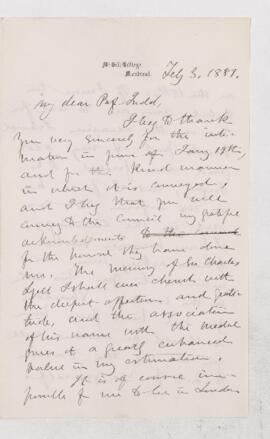 McGill College,
Montreal.
Feby 3, 1881.
My dear Prof Judd,
I beg to thank
you very sincerely for the inti-
mation in yours of Jany 19th,
and for the kind manner
in which it is conveyed,
and I beg that you will
convey to the Council my grateful
acknowledgments to the Council
for the honour they have done
me. The memory of Sir Charles
Lyell I shall ever cherish with
the deepest affection and grati-
tude, and the association
of his name with the medal
gives it a greatly enhanced
value in my estimation.
It is of course im-
possible for me to be in London